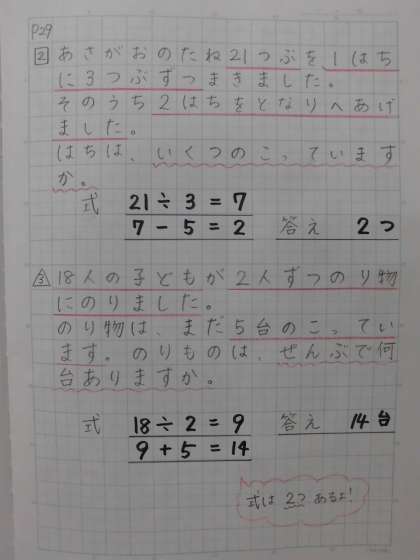 P29
2 あさがおのたね21つぶを1はち
に3つぶずつまきました。
そのうち2はちをとなりへあげ
ました。
はちは、いくつのこっています
か。
式 21÷3=7
7-5=2 答え 2つ
3 18人の子どもが2人ずつのり物
にのりました。
のり物は、まだ5台のこってい
ます。のりものは、ぜんぶで何
台ありますか。
式 18÷2=9 答え 14台
9+5=14
式は2つあるよ!